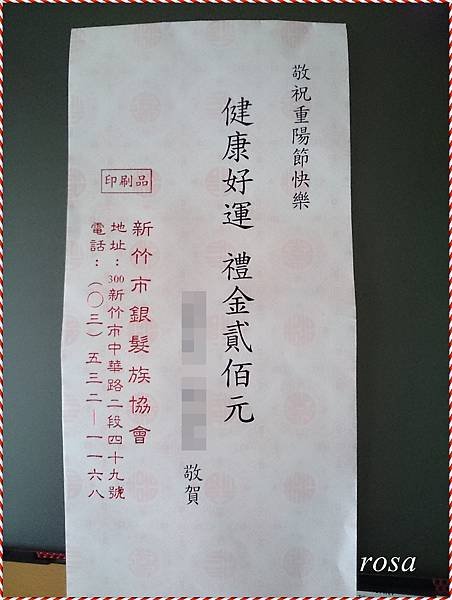 敬祝重陽節快樂
健康好運 禮金貳佰元
敬賀
印刷品
新竹市銀髮族協會
地址：300新竹市中華路二段四十九號
電話：（〇三）五三二—一一六八
rosa